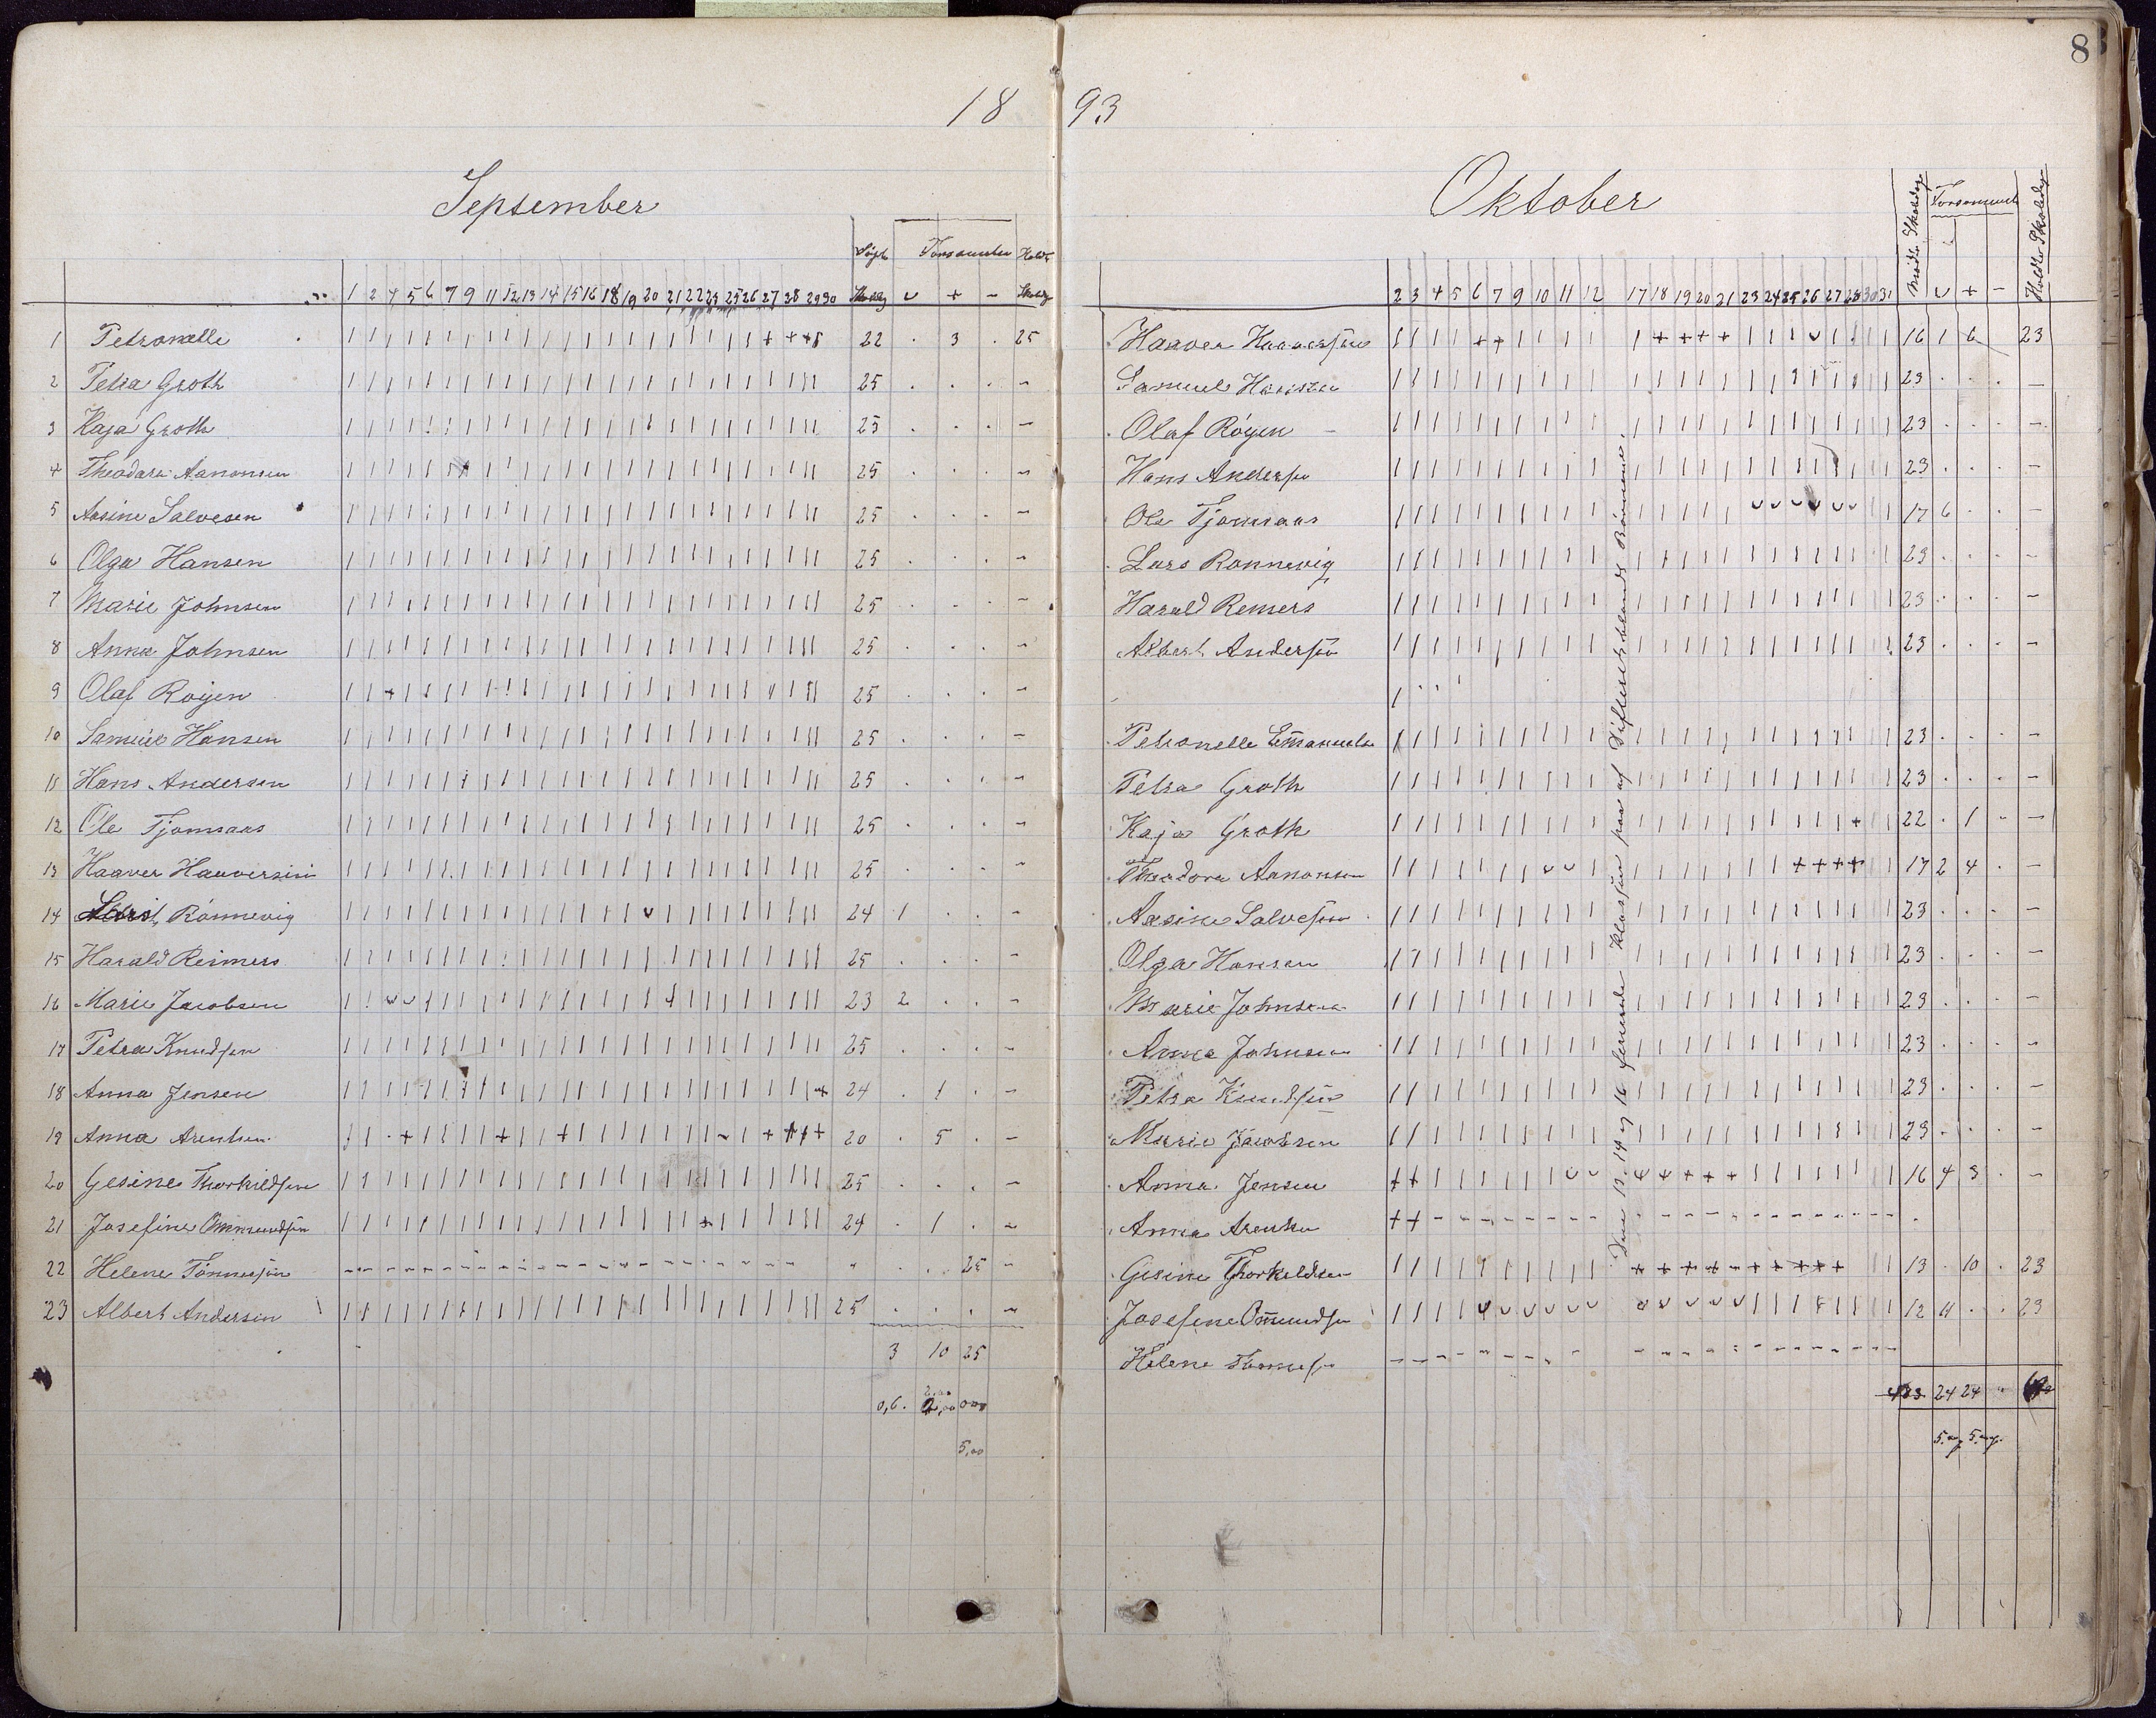 8
18 93
September
Forsømmelser
1 2 4 5 6 7 9 11 12 13 14 15 16 18 19 20 21 22 23 25 26 27 28 29 30 v + -
1 Petronelle 22 . 3 . 25
2 Petra Groth 25 . . . -
3 Kaja Groth 25 . . . -
4 Theodara Aanonsen 25 . . . -
5 Aasine Salvesen 25 . . . -
6 Olga Hansen 25 . . . -
7 Marie Johnsen 25 . . . -
8 Anna Johnsen 25 . . . -
9 Olaf Röyen 25 . . . -
10 Samuel Hansen 25 . . . -
11 Hans Andersen 25 . . . -
12 Ole Tjomsaas 25 . . . -
13 Haaver Haaversen 25 . . . -
14 Rönnevig 24 1 . . -
15 Harald Reimers 25 . . . -
16 Marie Jacobsen 23 2 . . -
17 Petra Knudsen 25 . . . -
18 Anna Jensen 24 . 1 . -
19 Anna Arentsen 20 . 5 . -
20 Gesine Thorkildsen 25 . . . -
21 Josefine Ommundsen 24 . 1 . -
22 Helene Tönnesen " . . 25 -
23 Albert Andersen 25 . . . -
3 10 25
0,6.
5,00
Oktober
Mødte Skoledage
Forsømmelser
Holdte Skoledage
2 3 4 5 6 7 9 10 11 12 17 18 19 20 21 23 24 25 26 27 28 30 31 v + -
Haaver Haaversen 16 1 6 23
Samuel Hansen 23 . . . -
Olaf Röyen 23 . . . -
Hans Andersen 23 . . . -
Ole Tjomsaas 17 6 . . -
Lars Ronnevig 23 . . . -
Harald Remers 23 . . . -
Albert Andersen 23 . . . -
Petronelle Emanuels 23 . . . -
Petra Groth 23 . . . -
Kaja Groth 22 . 1 . -
Theodora Aanonsen 17 2 4 . -
Aasine Salvesen 23 . . . -
Olga Hansen 23 . . . -
Marie Johnsen 23 . . . -
Anna Johnsen 23 . . . -
Petra Knudsen 23 . . . -
Marie Jacobsen 23 . . . -
Anna Jensen 16 4 3 . -
Anna Arentsen
Gesine Thorkeldsen 13 . 10 . 23
Josefine Ommundsen 12 11 . . 23
Helene Tönnesen
24 24
Den 13. 14 og 16 fererede Klassen paa af Difterit blandt Börnene.